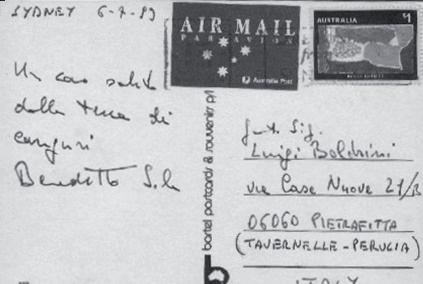 SYDNEY 6-7-89
Un caro saluto
dalla terra di
canguri
Benedetto
AIR MAIL
PAR AVION
Australia Post
AUSTRALIA
$1
bartel postcards & souvenirs p/l
Gent. Sig.
Luigi Boldrini
via Case Nuove 21/B
06060 PIETRAFITTA
(TAVERNELLE-PERUGIA)
ITALY